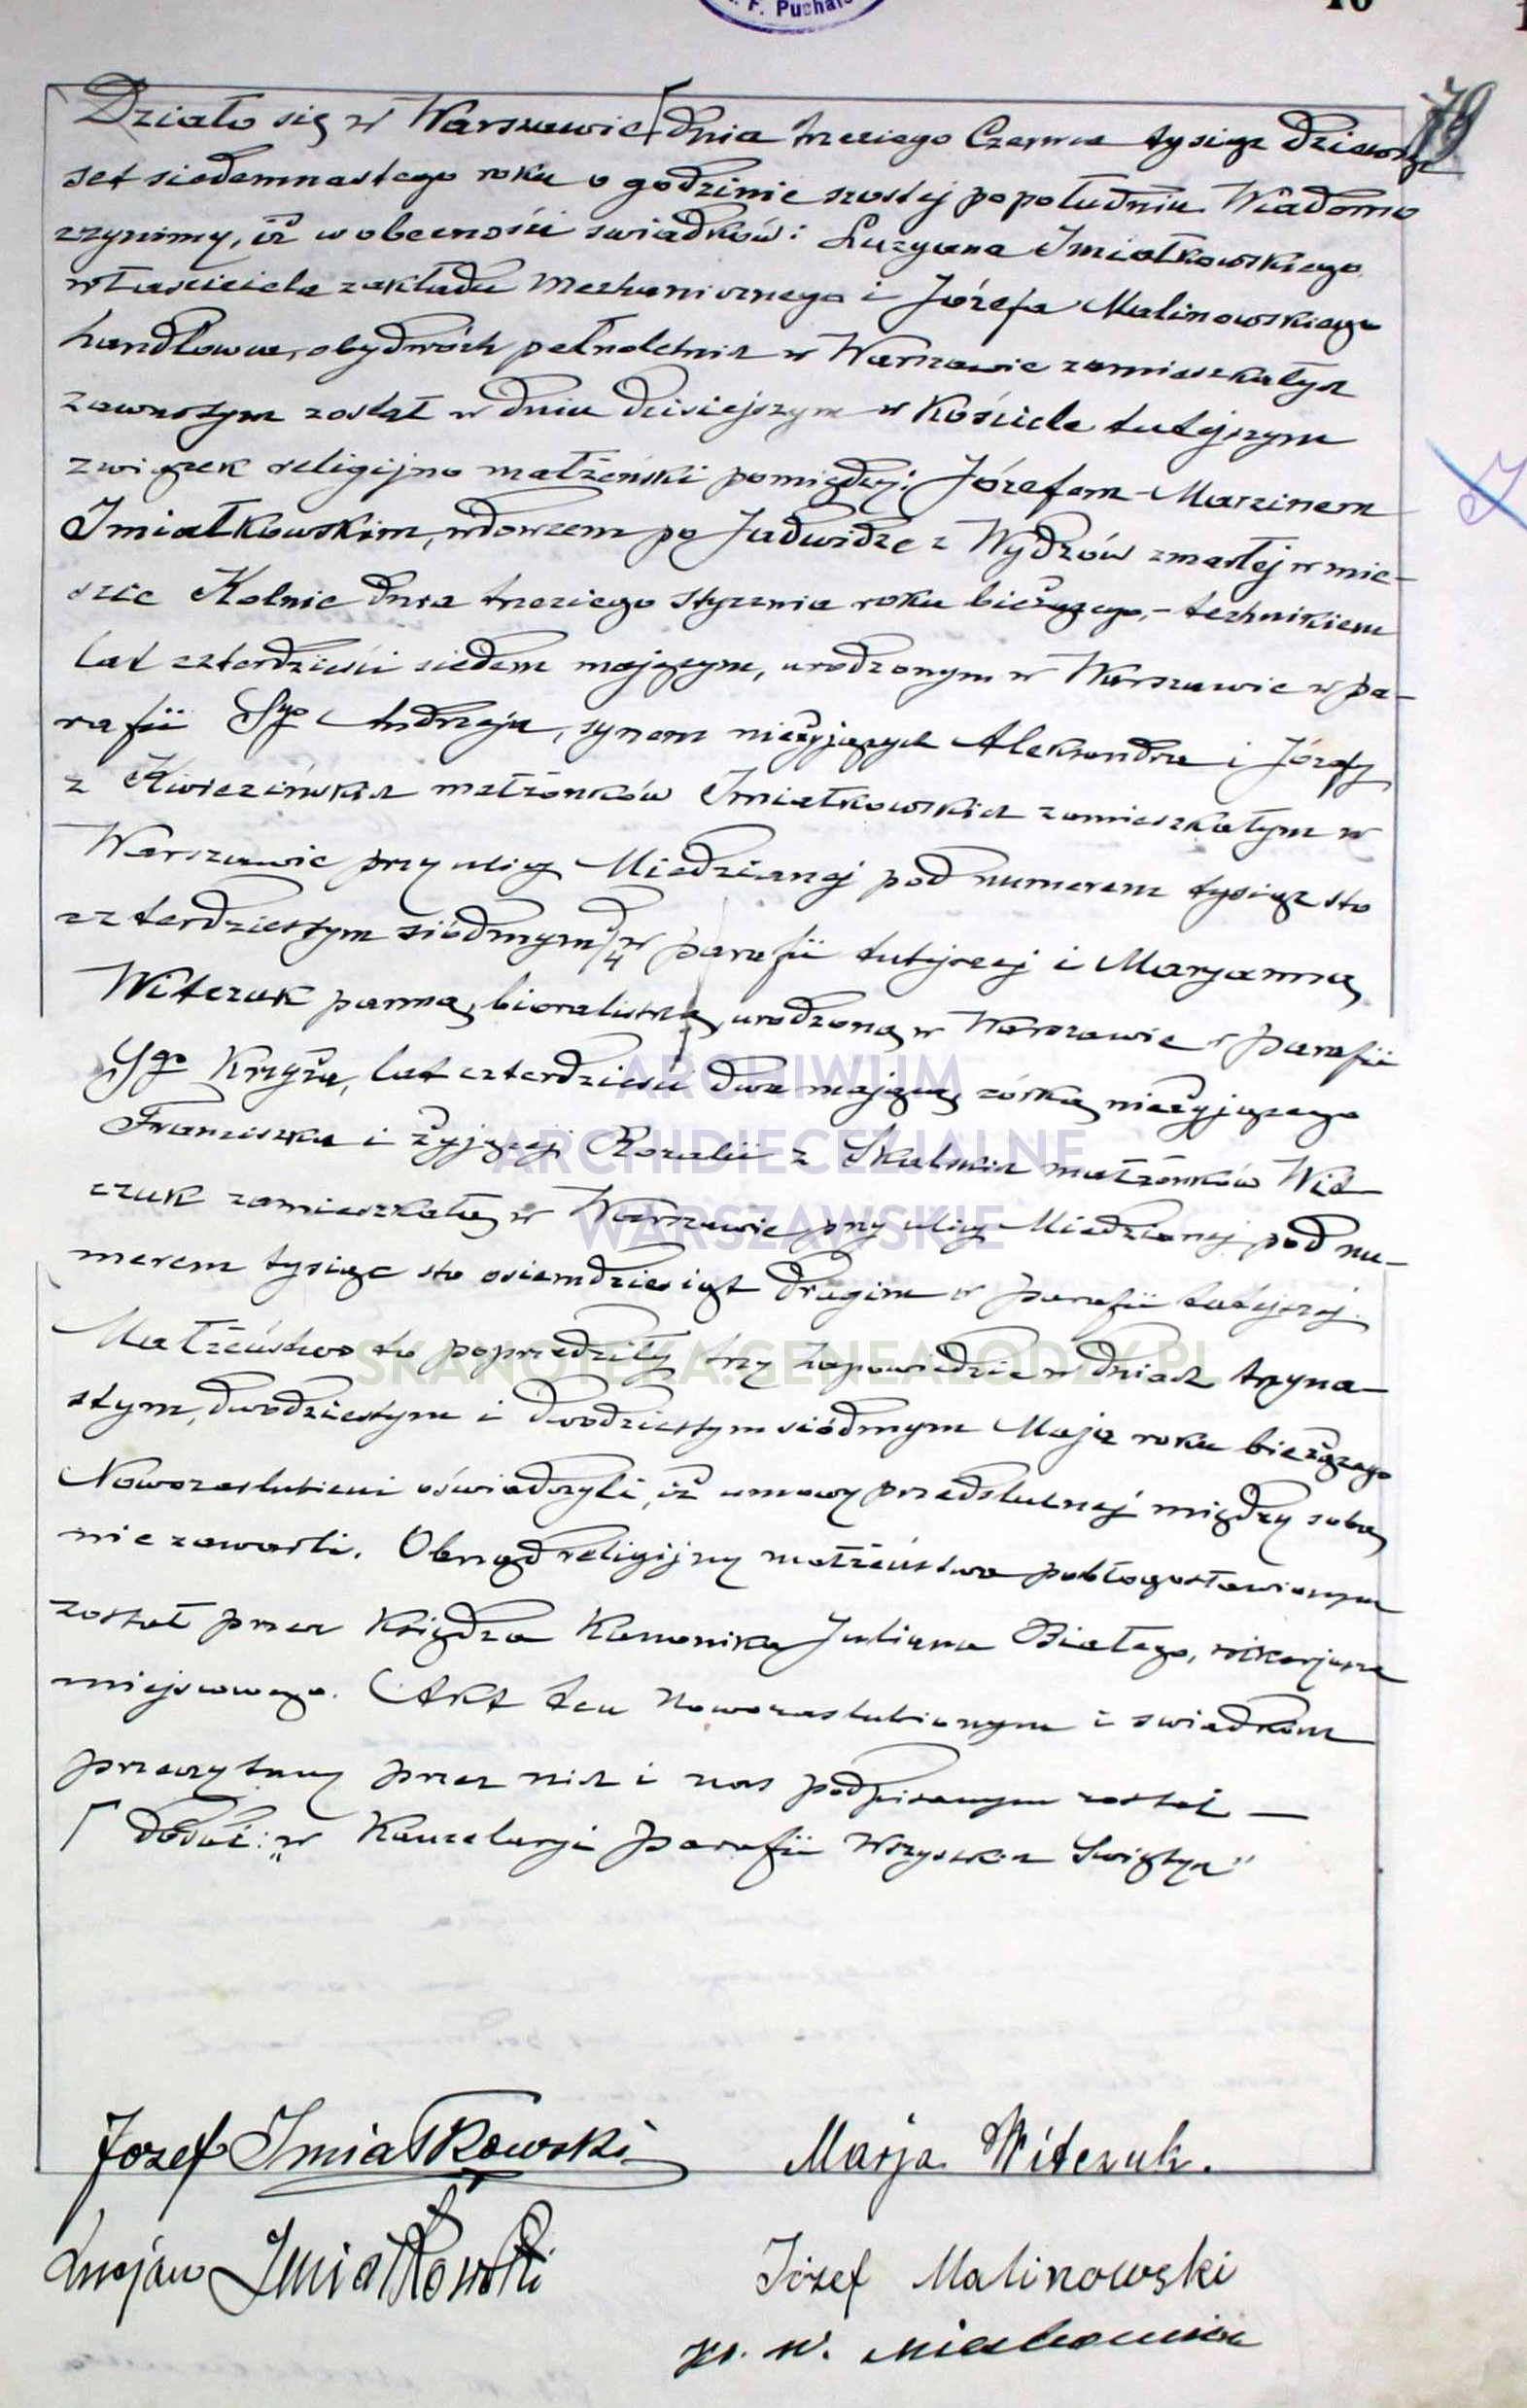 F. Puchals
10
79
Działo się w Warszawie dnia trzeciego Czerwca tysiąc dziewięć
set siedemnastego roku o godzinie szóstej popołudniu. Wiadomo
czynimy, iż w obecności swiadków: Lucyana Imiałkowskiego
własciciela zakładu mechanicznego i Józefa Malinowskiego
handlowca, obydwóch pełnoletnich w Warszawie zamieszkałych
zawartym został w dniu dzisiejszym w Kościele tutejszym
związek religijno małżeński pomiędzy: Józefem-Marcinem
Imiałkowskim, wdowcem po Jadwidze z Wydzów zmarłej w mie-
scie Kolnie dnia trzeciego stycznia roku bieżącego, - technikiem
lat czterdzieści siedem mającym, urodzonym w Warszawie w pa-
rafii Sgo Andrzeja, synem nieżyjących Aleksandra i Józefy
z małżonków Imiałkowskich zamieszkałym w
Warszawie przy ulicy Miedzianej pod numerem tysiąc sto
czterdziestym siódmym w parafii tutejszej i Maryanną
Witczuk panną, bioralistką, urodzoną w Warszawie w parafii
Sgo Krzyża, lat czterdzieści dwa mającą, córką nieżyjącego
Franciszka i żyjącej Rozalii z Skalskich małżonków Wit-
czuk zamieszkałą w Warszawie przy ulicy Miedzianej pod nu-
merem tysiąc sto osiemdziesiąt drugim w parafii tutejszej.
Małżeństwo to poprzedziły trzy zapowiedzie w dniach trzyna-
stym, dwudziestym i dwudziestym siódmym Maja roku bieżącego
Nowozaslubieni oświadczyli, iż umowy przedślubnej między sobą
nie zawarli. Obrzęd religijny małżeństwa pobłogosławionym
został przez Księdza Kanonika Juliana Białego, wikarjusza
miejscowego. Akt ten Nowozaslubionym i swiadkom
przeczytany przez nich i nas podpisanym został —
dodać: "w Kancelarji parafii Wszystkich Swiętych"
ARCHIWUM
ARCHIDIECEZJALNE
WARSZAWSKIE
SKANOTEKA.GENEALODZY.PL
Jozef Imiałkowski Marja Witczuk.
Lucjan Imiałkowski Józef Malinowski